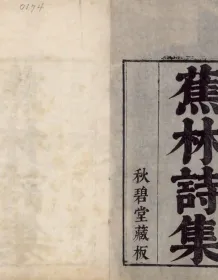 蕉林詩集
秋碧堂藏板
0174